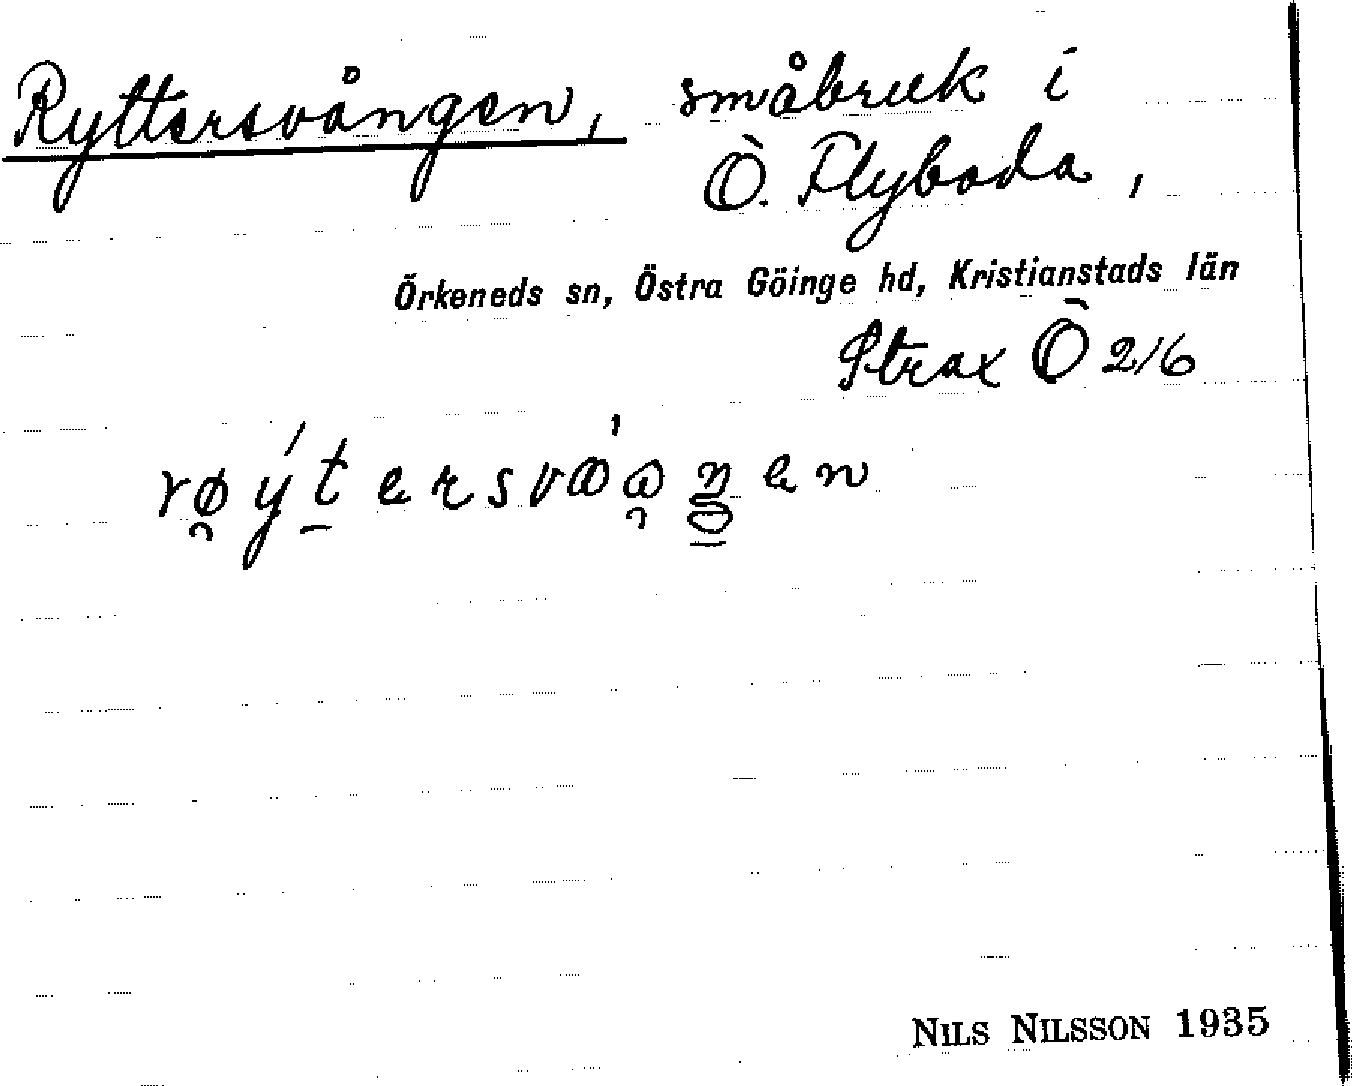 Ryttersvången, småbruk i
Ö. Flyboda,
Örkeneds sn, Östra Göinge hd, Kristianstads län
Strax Ö 2/6
Nils Nilsson 1935